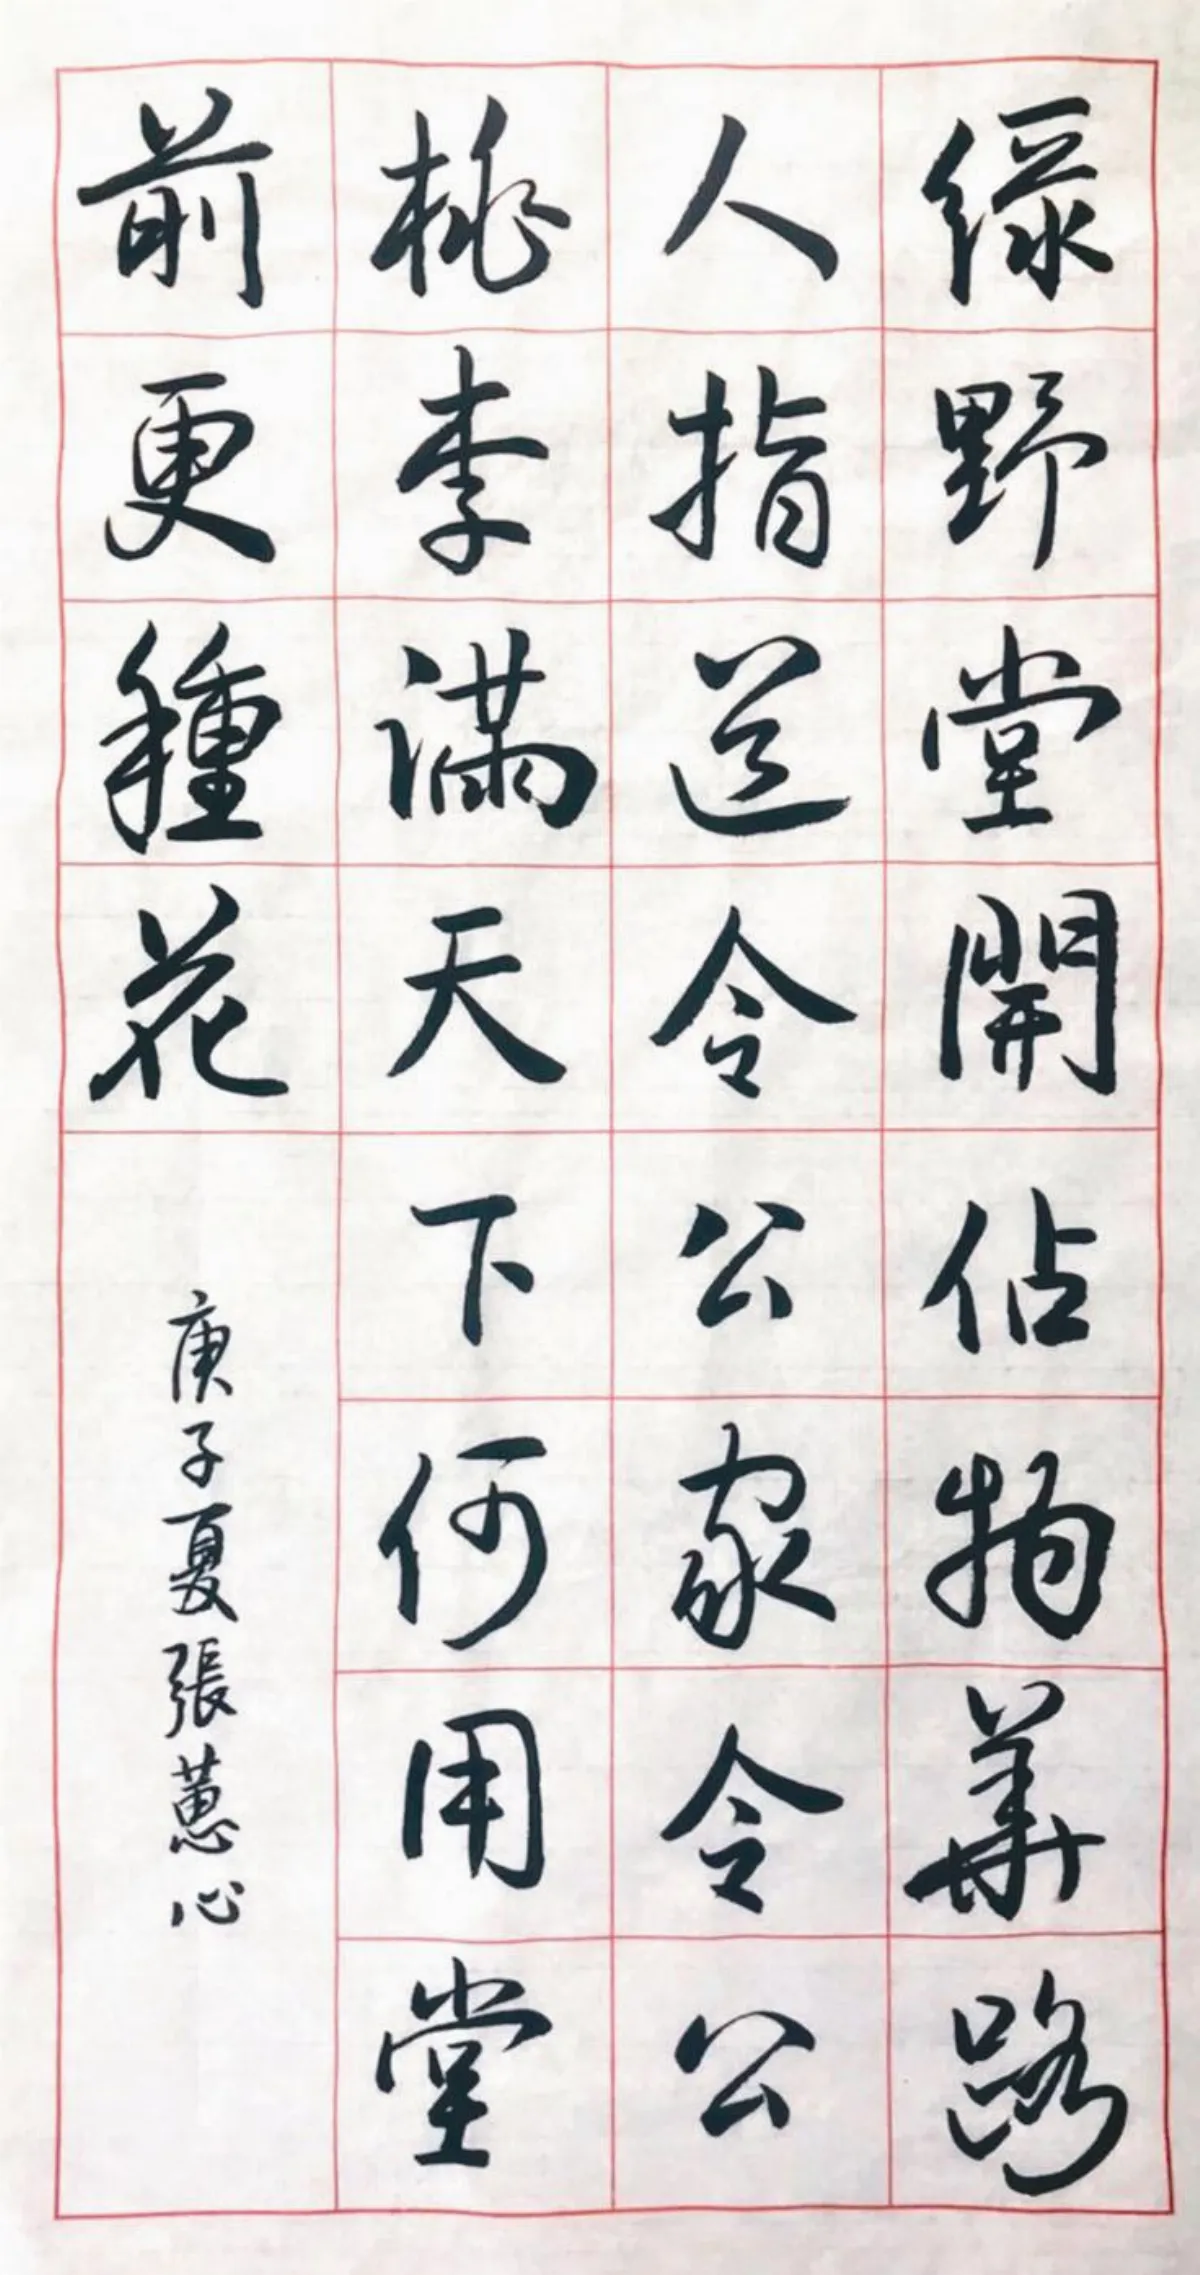 綠野堂開佔物華路
人指道令公家令公
桃李滿天下何用堂
前更種花
庚子夏張蕙心